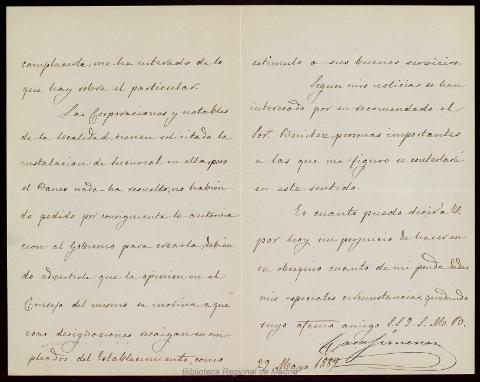 complacerle, me ha enterado de lo
que hay sobre el particular.
Las Corporaciones y notables
de la localidad, tienen solicitada la
instalacion de sucursal en ella, pero
el Banco nada ha resuelto, no habien
do pedido por consiguiente la autoriza
cion al Gobierno para crearla, debien
do advertirle que la opinion en el
Consejo del mismo se inclina a que
esas designaciones recaigan en em
pleados del Establecimiento, como
estimulo a sus buenos servicios.
Segun mis noticias se han
interesado por su recomendado el
Sor. Benitez, personas importantes
a las que me figuro se contestará
en este sentido.
Es cuanto puedo decir a V.
por hoy sin perjuicio de hacer en
su obsequio cuanto de mi penda dadas
mis especiales circunstancias, quedando
suyo afmo amigo S. S. Q. S. M. B.
29 Mayo 1887
Biblioteca Regional de Madrid